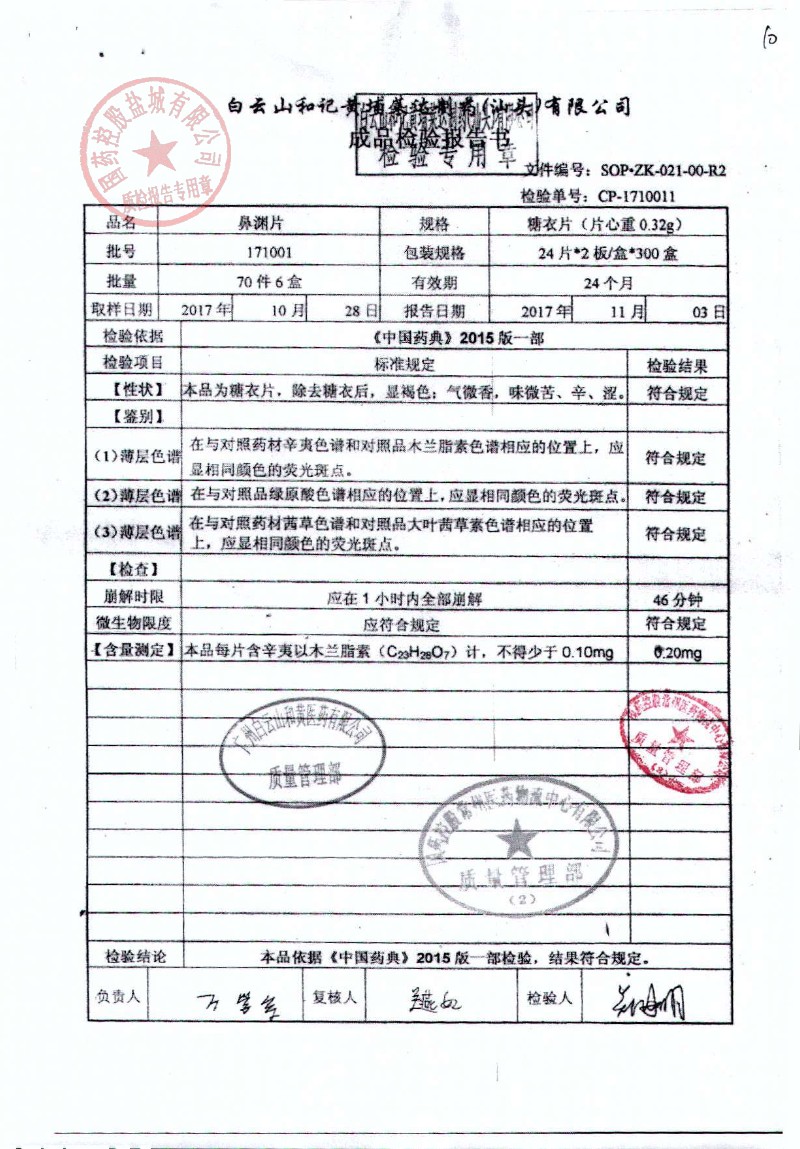 白云山和记黄埔莱达制药(汕头)有限公司
成品检验报告书
检验专用章
国药控股盐城有限公司
质检报告专用章
文件编号：SOP·ZK-021-00-R2
检验单号：CP-1710011
品名 鼻渊片 规格 糖衣片（片心重0.32g）
批号 171001 包装规格 24片*2板/盒*300盒
批量 70件6盒 有效期 24个月
取样日期 2017年 10月 28日 报告日期 2017年 11月 03日
检验依据 《中国药典》2015版一部
检验项目 标准规定 检验结果
【性状】 本品为糖衣片，除去糖衣后，显褐色；气微香，味微苦、辛、涩。 符合规定
【鉴别】
(1)薄层色谱 在与对照药材辛夷色谱和对照品木兰脂素色谱相应的位置上，应
显相同颜色的荧光斑点。 符合规定
(2)薄层色谱 在与对照品绿原酸色谱相应的位置上，应显相同颜色的荧光斑点。 符合规定
(3)薄层色谱 在与对照药材茜草色谱和对照品大叶茜草素色谱相应的位置
上，应显相同颜色的荧光斑点。 符合规定
【检查】
崩解时限 应在1小时内全部崩解 46分钟
微生物限度 应符合规定 符合规定
【含量测定】 本品每片含辛夷以木兰脂素（C23H28O7）计，不得少于0.10mg 0.20mg
广州白云山和黄医药有限公司
质量管理部
国药控股常州医药物流中心有限公司
质量管理部
(2)
质量管理部
检验结论 本品依据《中国药典》2015版一部检验，结果符合规定。
负责人 复核人 检验人